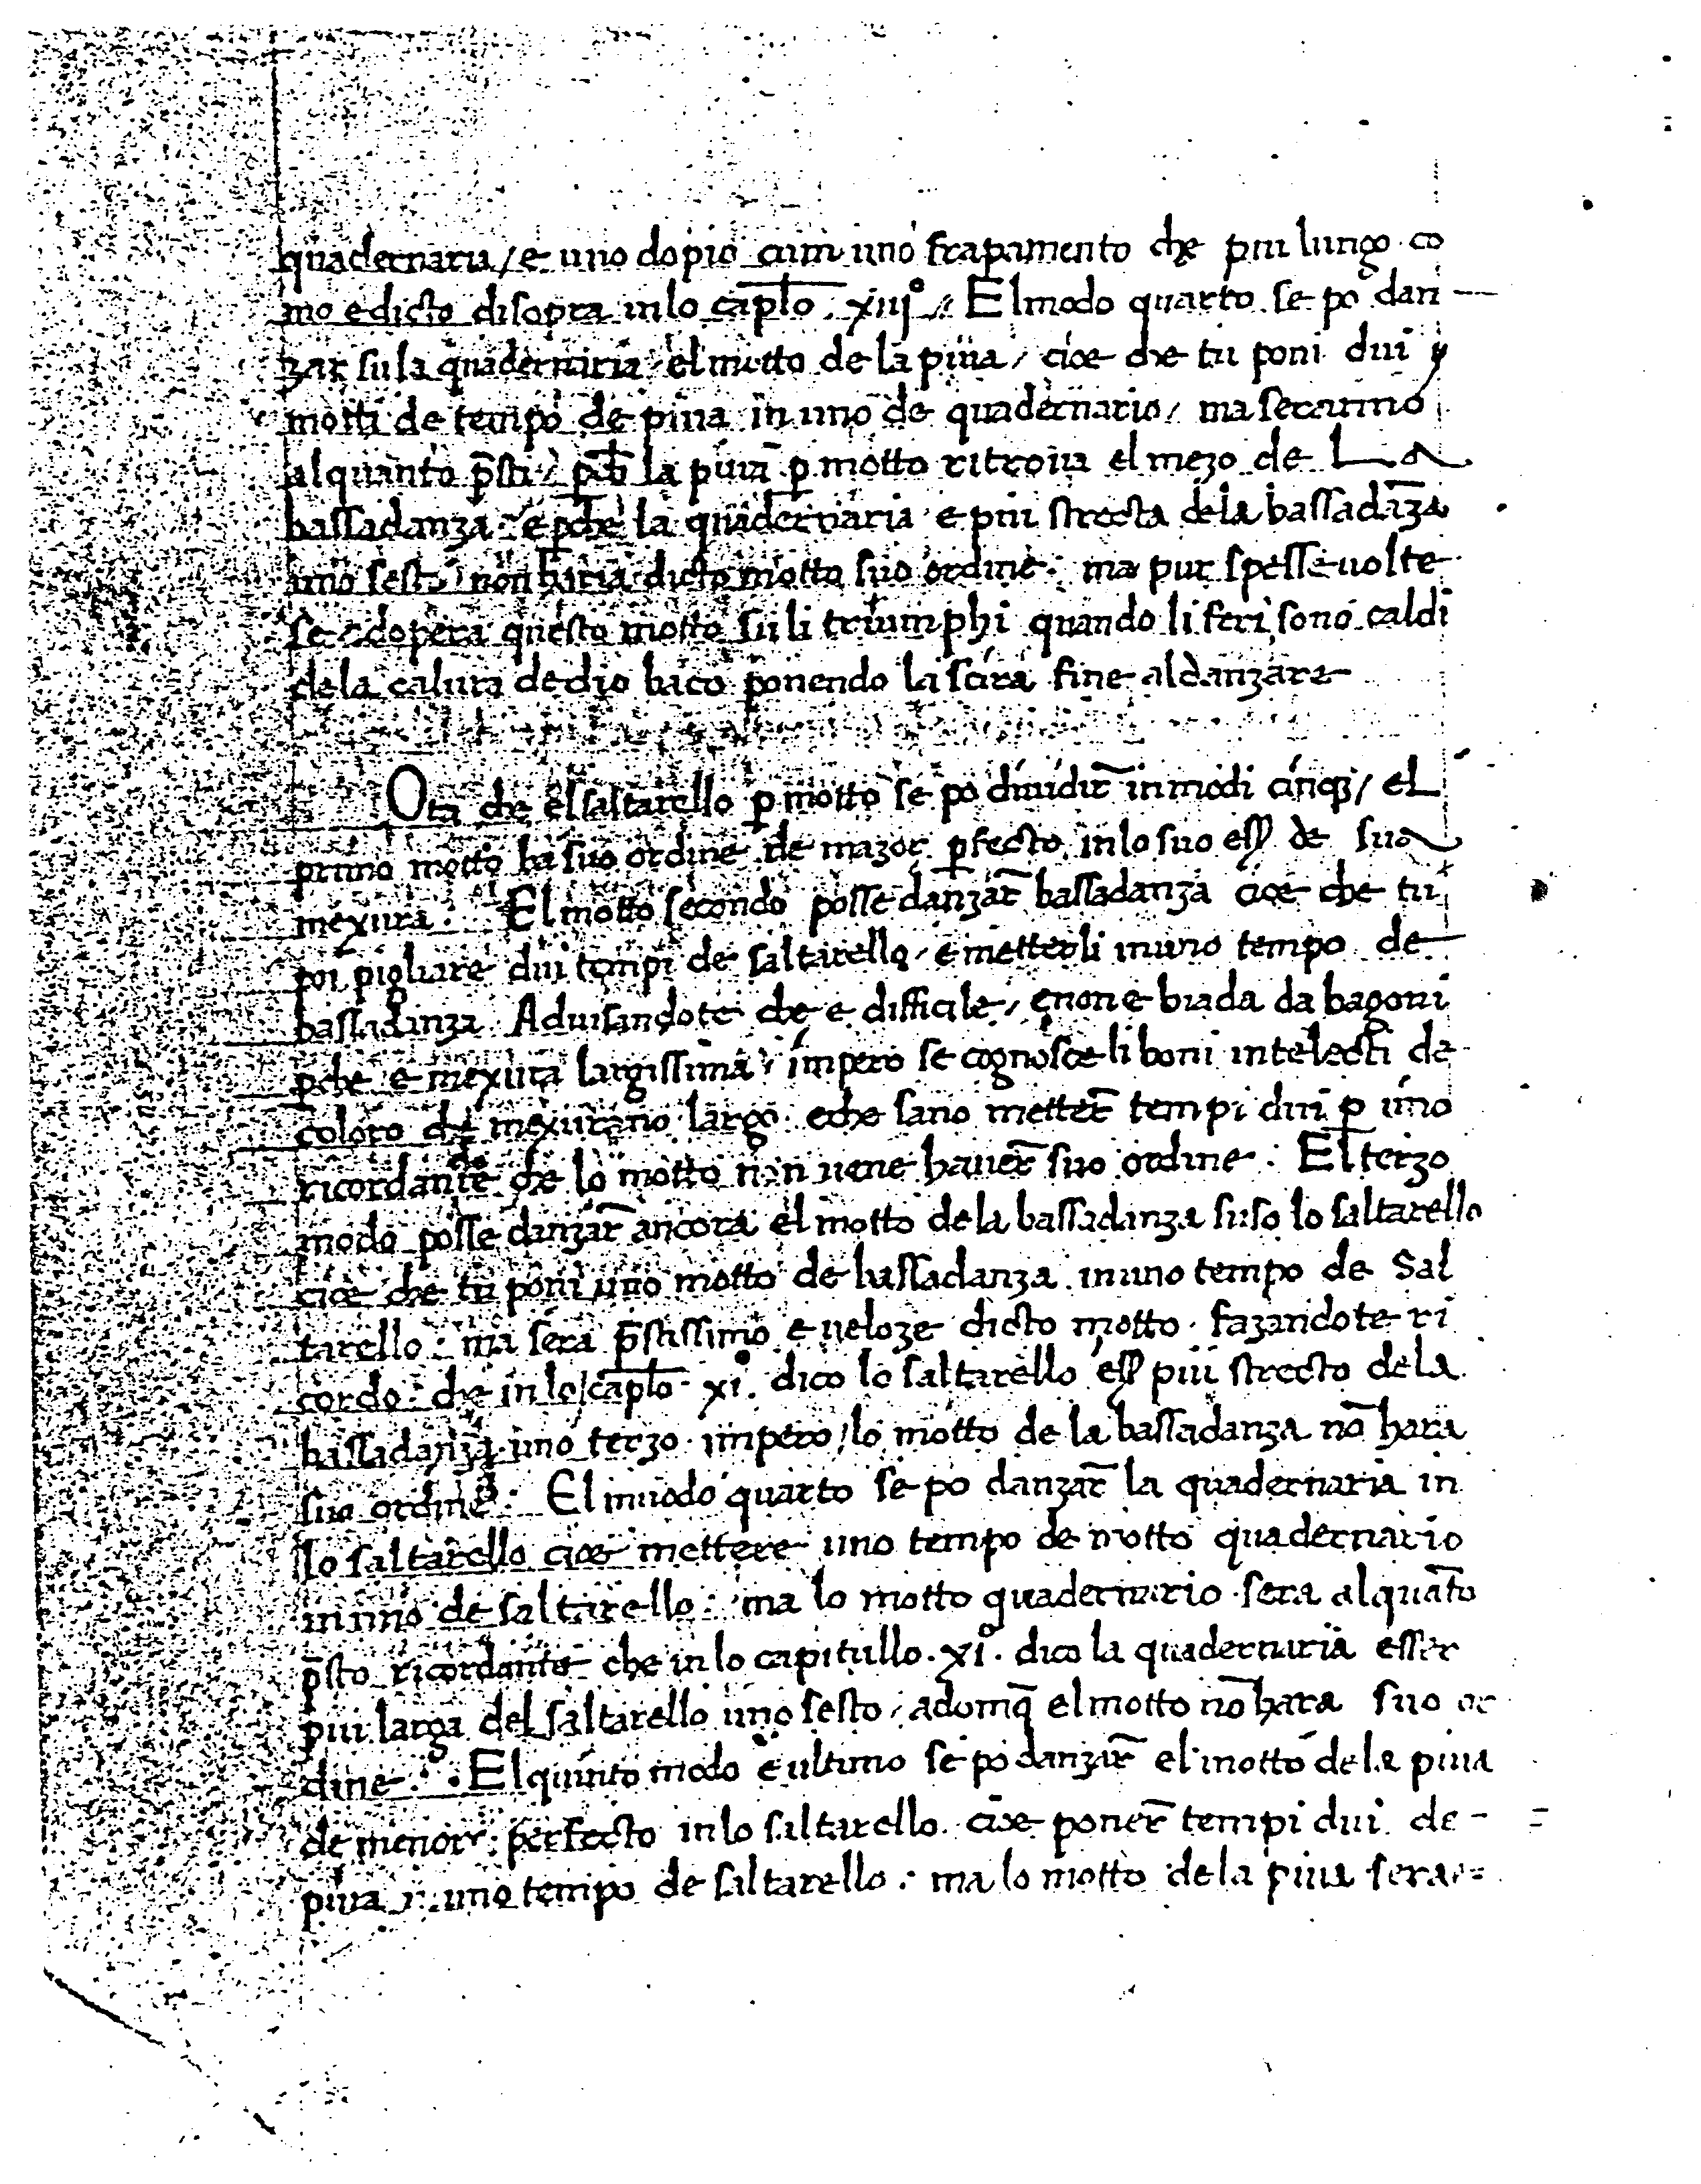 quadernaria / e uno dopio cum uno frapamento che piu lungo co
mo e dicto disopra in lo cap̅lo . xiijº // El modo quarto se po dan
zar su la quadernaria el motto de la piua / cioe che tu poni dui
motti de tempo de piua in uno de quadernario / ma seranno
alquanto p̅sti / la piua p̱ motto ritroua el mezo de La
bassadanza e p̱che la quadernaria e piu strecta de la bassada̅za
uno sesto non haria dicto motto suo ordine : ma pur spesse uolte
se adopera questo motto su li triumphi quando li feri sono caldi
de la calura de dio baco ponendo la scira fine al danzare
Ota che el saltarello p̱ motto se po diuidir̅ in modi cinq3 / eL
primo motto ha suo ordine de mazor p̱fecto in lo suo eſſ de sua
mexura : El motto secondo posse danzar̅ bassadanza cioe che tu
poi pigliare dui tempi de saltarello / e metterli in uno tempo de
bassadanza Aduisandote che e difficile / e non e biada da bagoni
p̱che e mexura largissima / impero se cognosce li boni intelecti de
coloro che mexurano largo e che sano metter̅ tempi dui p̱ uno
ricordandote che lo motto non uene hauer̅ suo ordine : El terzo
modo posse danzar̅ ancora el motto de la bassadanza suso lo saltarello
cioe che tu poni uno motto de bassadanza in uno tempo de Sal
tarello : ma sera p̅stissimo e ueloze dicto motto . fazandote ri
cordo : che in lo cap̅lo xiº. dico lo saltarello eſſ piu strecto de la
bassadanza uno terzo impero / lo motto de la bassadanza no̅ hara
suo ordine : El muodo quarto se po danzar̅ la quadernaria in
lo saltarello cioe mettere uno tempo de motto quadernario
in uno de saltarello : ma lo motto quadernario sera alqua̅to
p̅sto ricordante che in lo capitullo . xiº . dico la quadernaria esser
piu larga del saltarello uno sesto / adomq̅ el motto no̅ hara suo or
dine : . El quinto modo e ultimo se po danzar̅ el motto de la piua
de menor perfecto in lo saltarello cioe poner̅ tempi dui de -
piua in uno tempo de saltarello : ma lo motto de la piua sera =